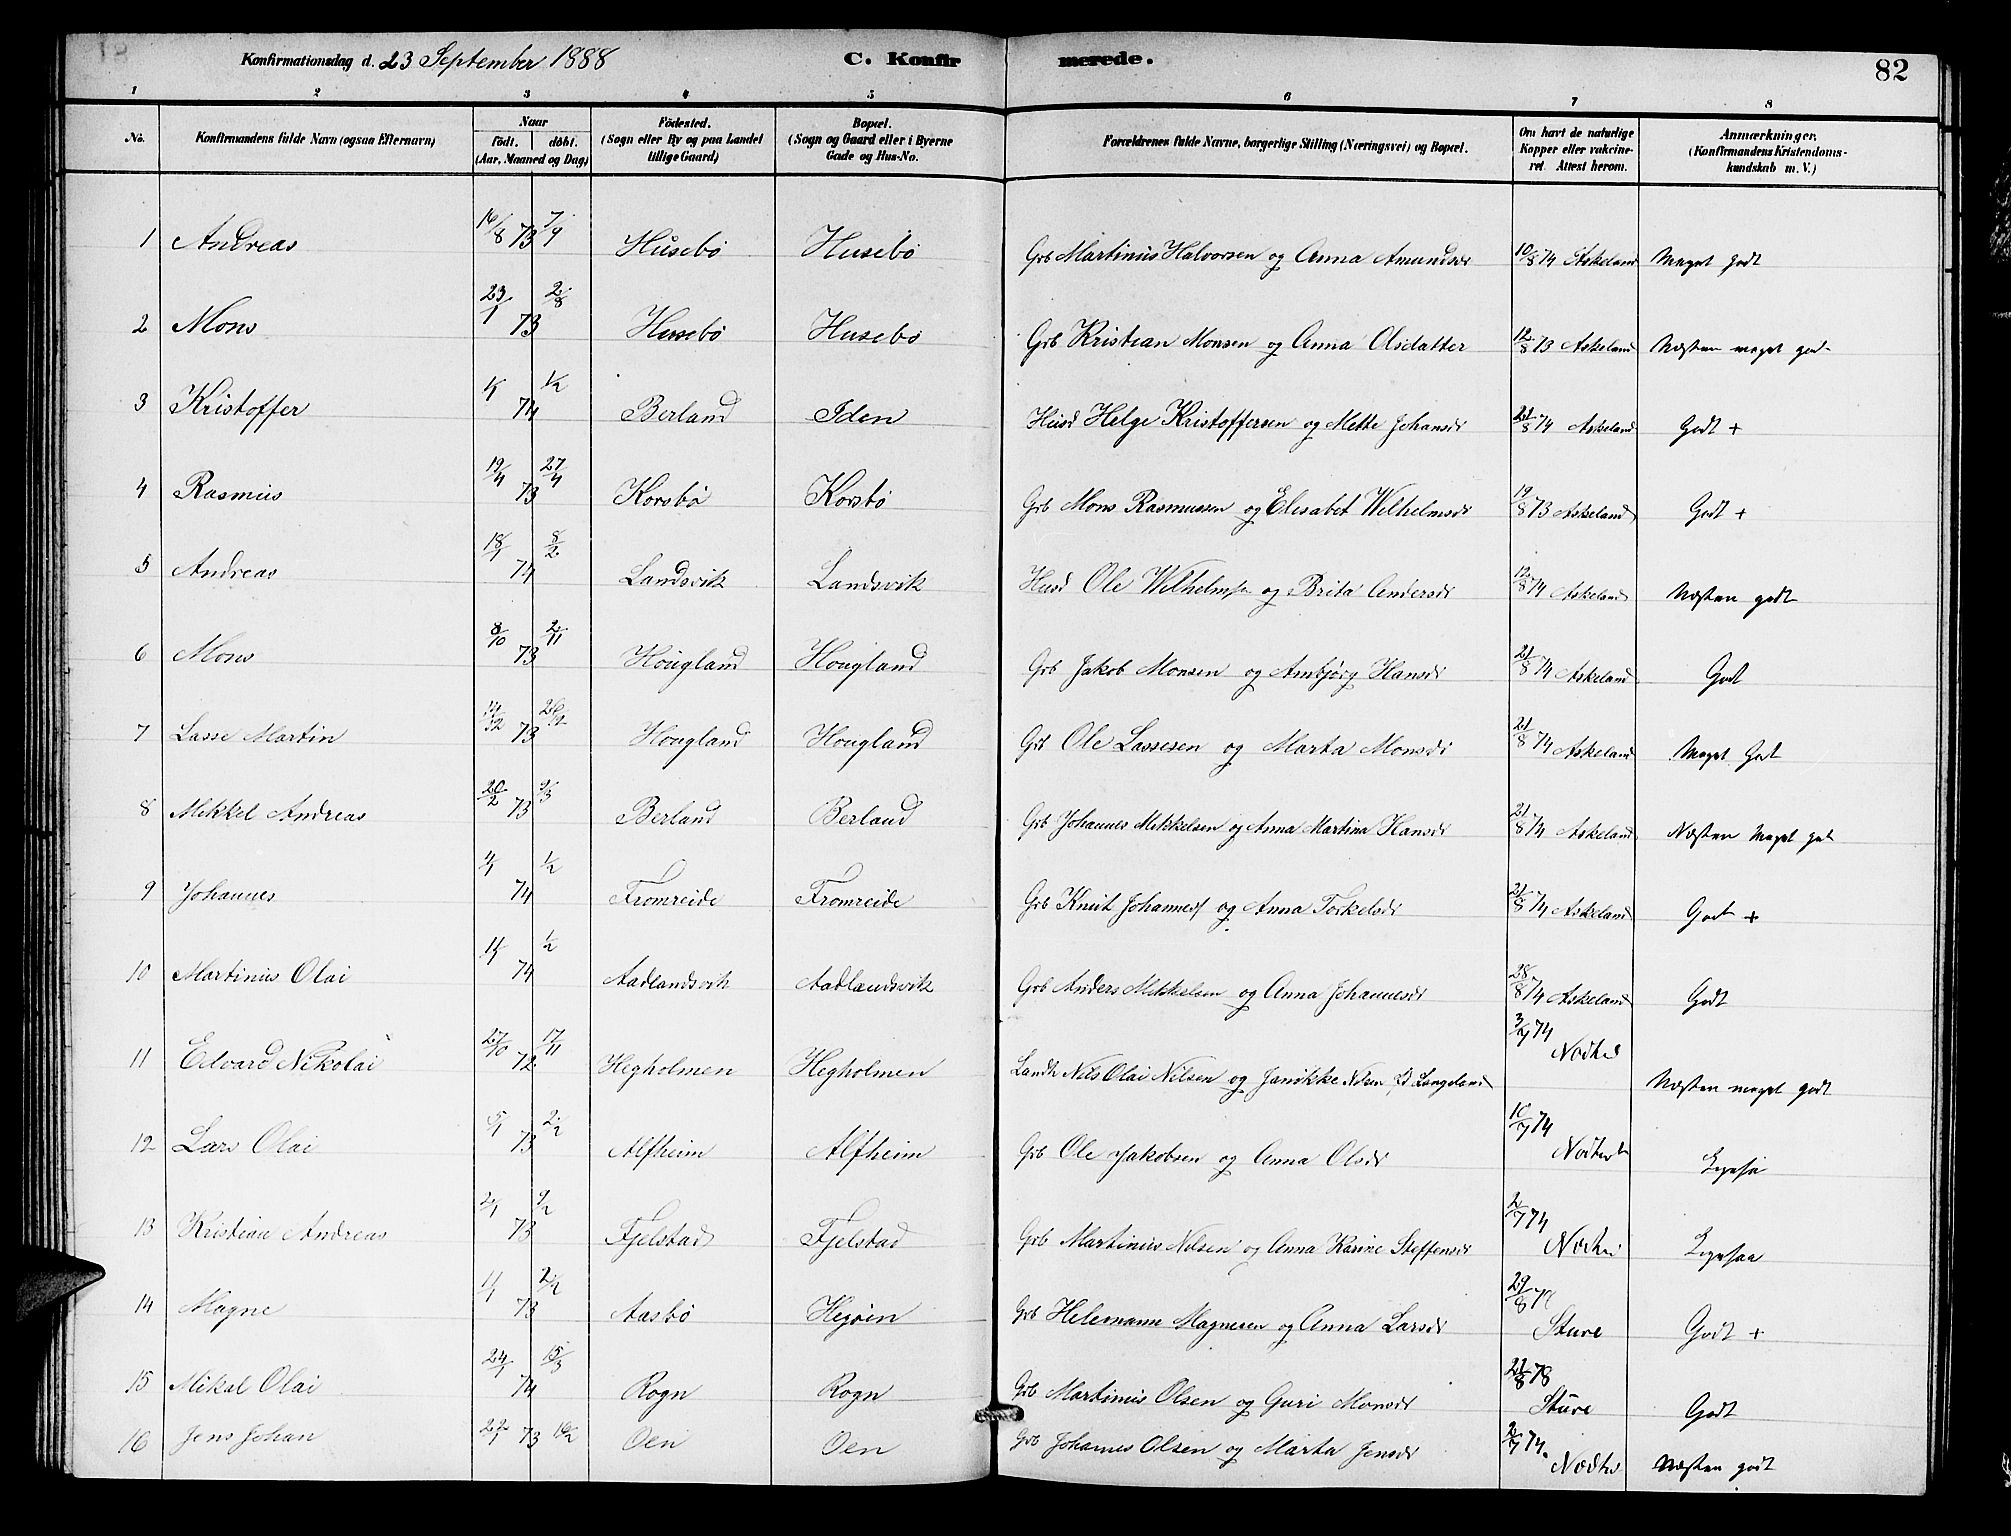 Konfirmationsdag d. 23 September 1888 C. Konfirmerede. 82
1 2 3 4 5 6 7 8
No. Konfirmandens fulde Navn (ogsaa Efternavn) Naar født. døbt. (Aar, Maaned og Dag) Fødested. (Sogn eller By og paa Landet tillige Gaard) Bopæl. (Sogn og Gaard eller i Byerne Gade og Hus-No. Forældrenes fulde Navne, borgerlige Stilling (Næringsvei) og Bopæl. Om havt de naturlige Kopper eller vakcineret. Attest herom. Anmærkninger. (Konfirmandens Kristendomskundskab m. V.)
1 Andreas 16/8 73 7/9 Husebø Husebø Grb Martinus Halvorsen og Anna Amundsdr 10/8 74 Askeland Meget godt
2 Mons 23/1 73 2/8 Husebø Husebø Grb Kristian Monsen og Anna Olsdatter 12/8 73 Askeland Næsten meget god
3 Kristoffer 74 1/2 Berland Iden Husd Helge Kristoffersen og Mette Johansdr 21/8 74 Askeland Godt +
4 Rasmus 19/4 73 27/4 Korsbø Korsbø Grb Mons Rasmussen og Elisabet Wilhelmsdr 19/8 73 Askeland Godt +
5 Andreas 18/1 74 8/2 Landsvik Landsvik Husd Ole Wilhelmsn og Brita Andersdr 12/8 74 Askeland Næsten godt
6 Mons 8/10 73 2/11 Hougland Hougland Grb Jakob Monsen og Ambjørg Hansdr 21/8 74 Askeland Godt
7 Lasse Martin 73 Hougland Hougland Grb Ole Lassesen og Marta Monsdr 21/8 74 Askeland Meget Godt
8 Mikkel Andreas 20/2 73 9/3 Berland Berland Grb Johannes Mikkelsen og Anna Martina Hansdr 21/8 74 Askeland Næsten Meget godt
9 Johannes 4/1 74 1/2 Fromreide Fromreide Grb Knut Johannes og Anna Torkelsdr 21/8 74 Askeland Godt +
10 Martinus Olai 74 1/2 Aadlandsvik Aadlandsvik Grb Anders Mikkelsen og Anna Johannesdr 28/8 74 Askeland Godt
11 Edvard Nikolai 27/10 72 17/11 Hegholmen Hegholmen Landh Nils Olai Nilsen og Janikke Nilsen Langeland 3/7 74 Nødtvd Næsten meget godt
12 Lars Olai 5/1 73 2/2 Alfheim Alfheim Grb Ole Jakobsen og Anna Olsdr 10/7 74 Nødtvd Ligesaa
13 Kristian Andreas 2/1 73 9/2 Fjelstad Fjelstad Grb Martinus Nilsen og Anna Karine Steffensdr 2/7 74 Nødtvd Ligesaa
14 Magne 73 2/2 Aasbø Hegøen Grb Helemann Magnesen og Anna Larsdr 29/8 78 Sture Godt +
15 Mikal Olai 24/1 74 15/3 Rogn Rogn Grb Martinus Olsen og Guri Monsdr 21/8 78 Sture Godt
16 Jens Johan 22/1 73 16/2 Oen Oen Grb Johannes Olsen og Marta Jensdr 2/7 74. Nødtvd Næsten godt